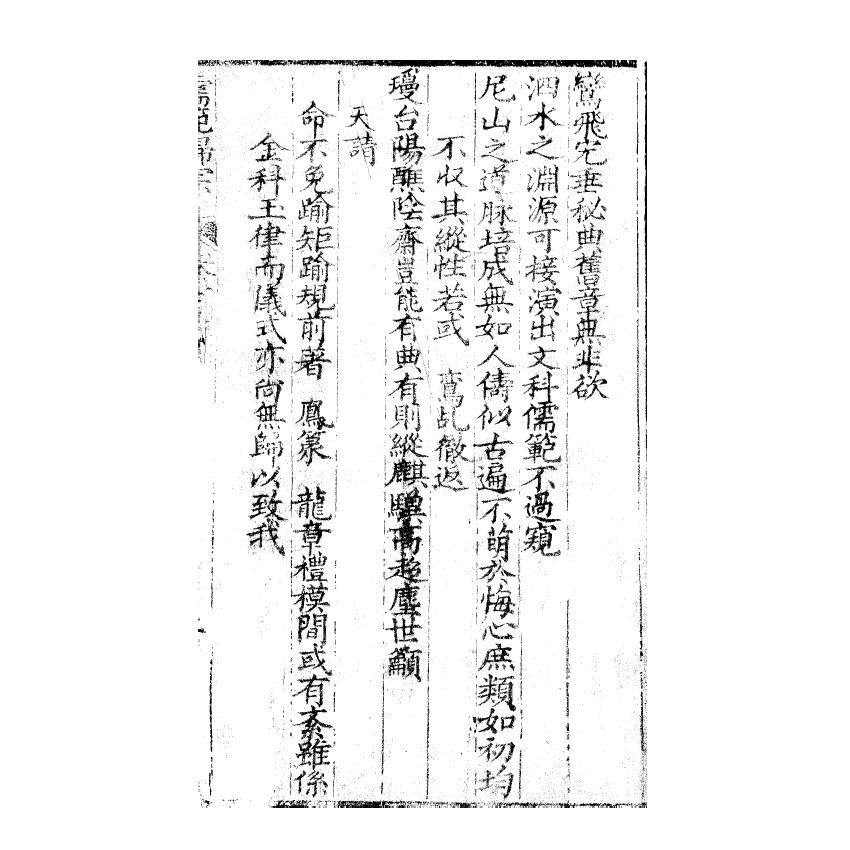 鸞飛完垂秘典舊章無非欲
泗水之淵源可接演出文科儒範不過窺
尼山之道脉培成無如人儔似古遍不萌於悔心庶類如初均
不収其縱性若或 鸞乩徹返
璦台陽醮陞齋豈能有典有則縱麒驥高超塵世籲
天請
命不免踰矩踰規前著 鳳篆 龍章禮模間或有紊雖係
金科玉律而儀式亦尚無歸以致我
儒範歸宗